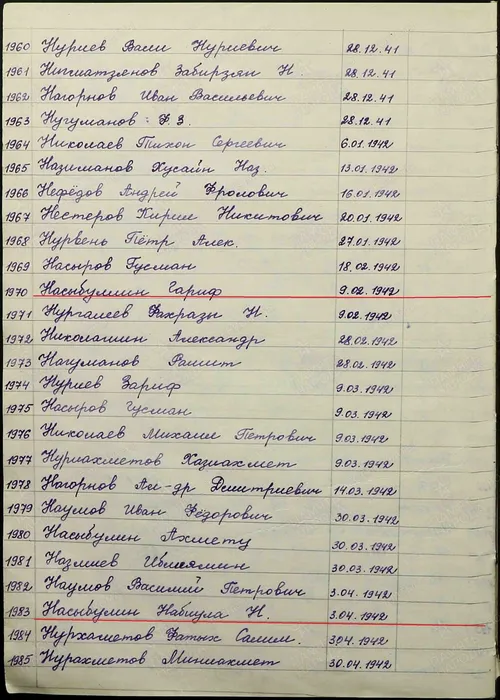 1960 Нуриев Вали Нуриевич 28.12.41
1961 Нигматзенов Забирзян Н. 28.12.41
1962 Нагорнов Иван Васильевич 28.12.41
1963 Нугуманов : Ф З. 28.12.41
1964 Николаев Тихон Сергеевич 6.01.1942
1965 Назиманов Хусаин Наз. 13.01.1942
1966 Нефёдов Андрей Фролович 16.01.1942
1967 Нестеров Кирил Никитович 20.01.1942
1968 Нурвень Пётр Алек. 27.01.1942
1969 Насыров Гусман 18.02.1942
1970 Насыбуллин Гариф 9.02.1942
1971 Нургалеев Фахразы Н. 9.02.1942
1972 Николашин Александр 28.02.1942
1973 Нагуманов Рашит 28.02.1942
1974 Нуриев Зариф 9.03.1942
1975 Насыров Гусман 9.03.1942
1976 Николаев Михаил Петрович 9.03.1942
1977 Нуриахметов Хазиахмет 9.03.1942
1978 Нагорнов Ал-др Дмитриевич 14.03.1942
1979 Наумов Иван Фёдорович 30.03.1942
1980 Насыбулин Ахмету 30.03.1942
1981 Назмиев 30.03.1942
1982 Наумов Василий Петрович 3.04.1942
1983 Насыбулин Набиула Н. 3.04.1942
1984 Нурхаметов Фатых Салим. 304.1942
1985 Нурахметов Миниахмет 30.04.1942